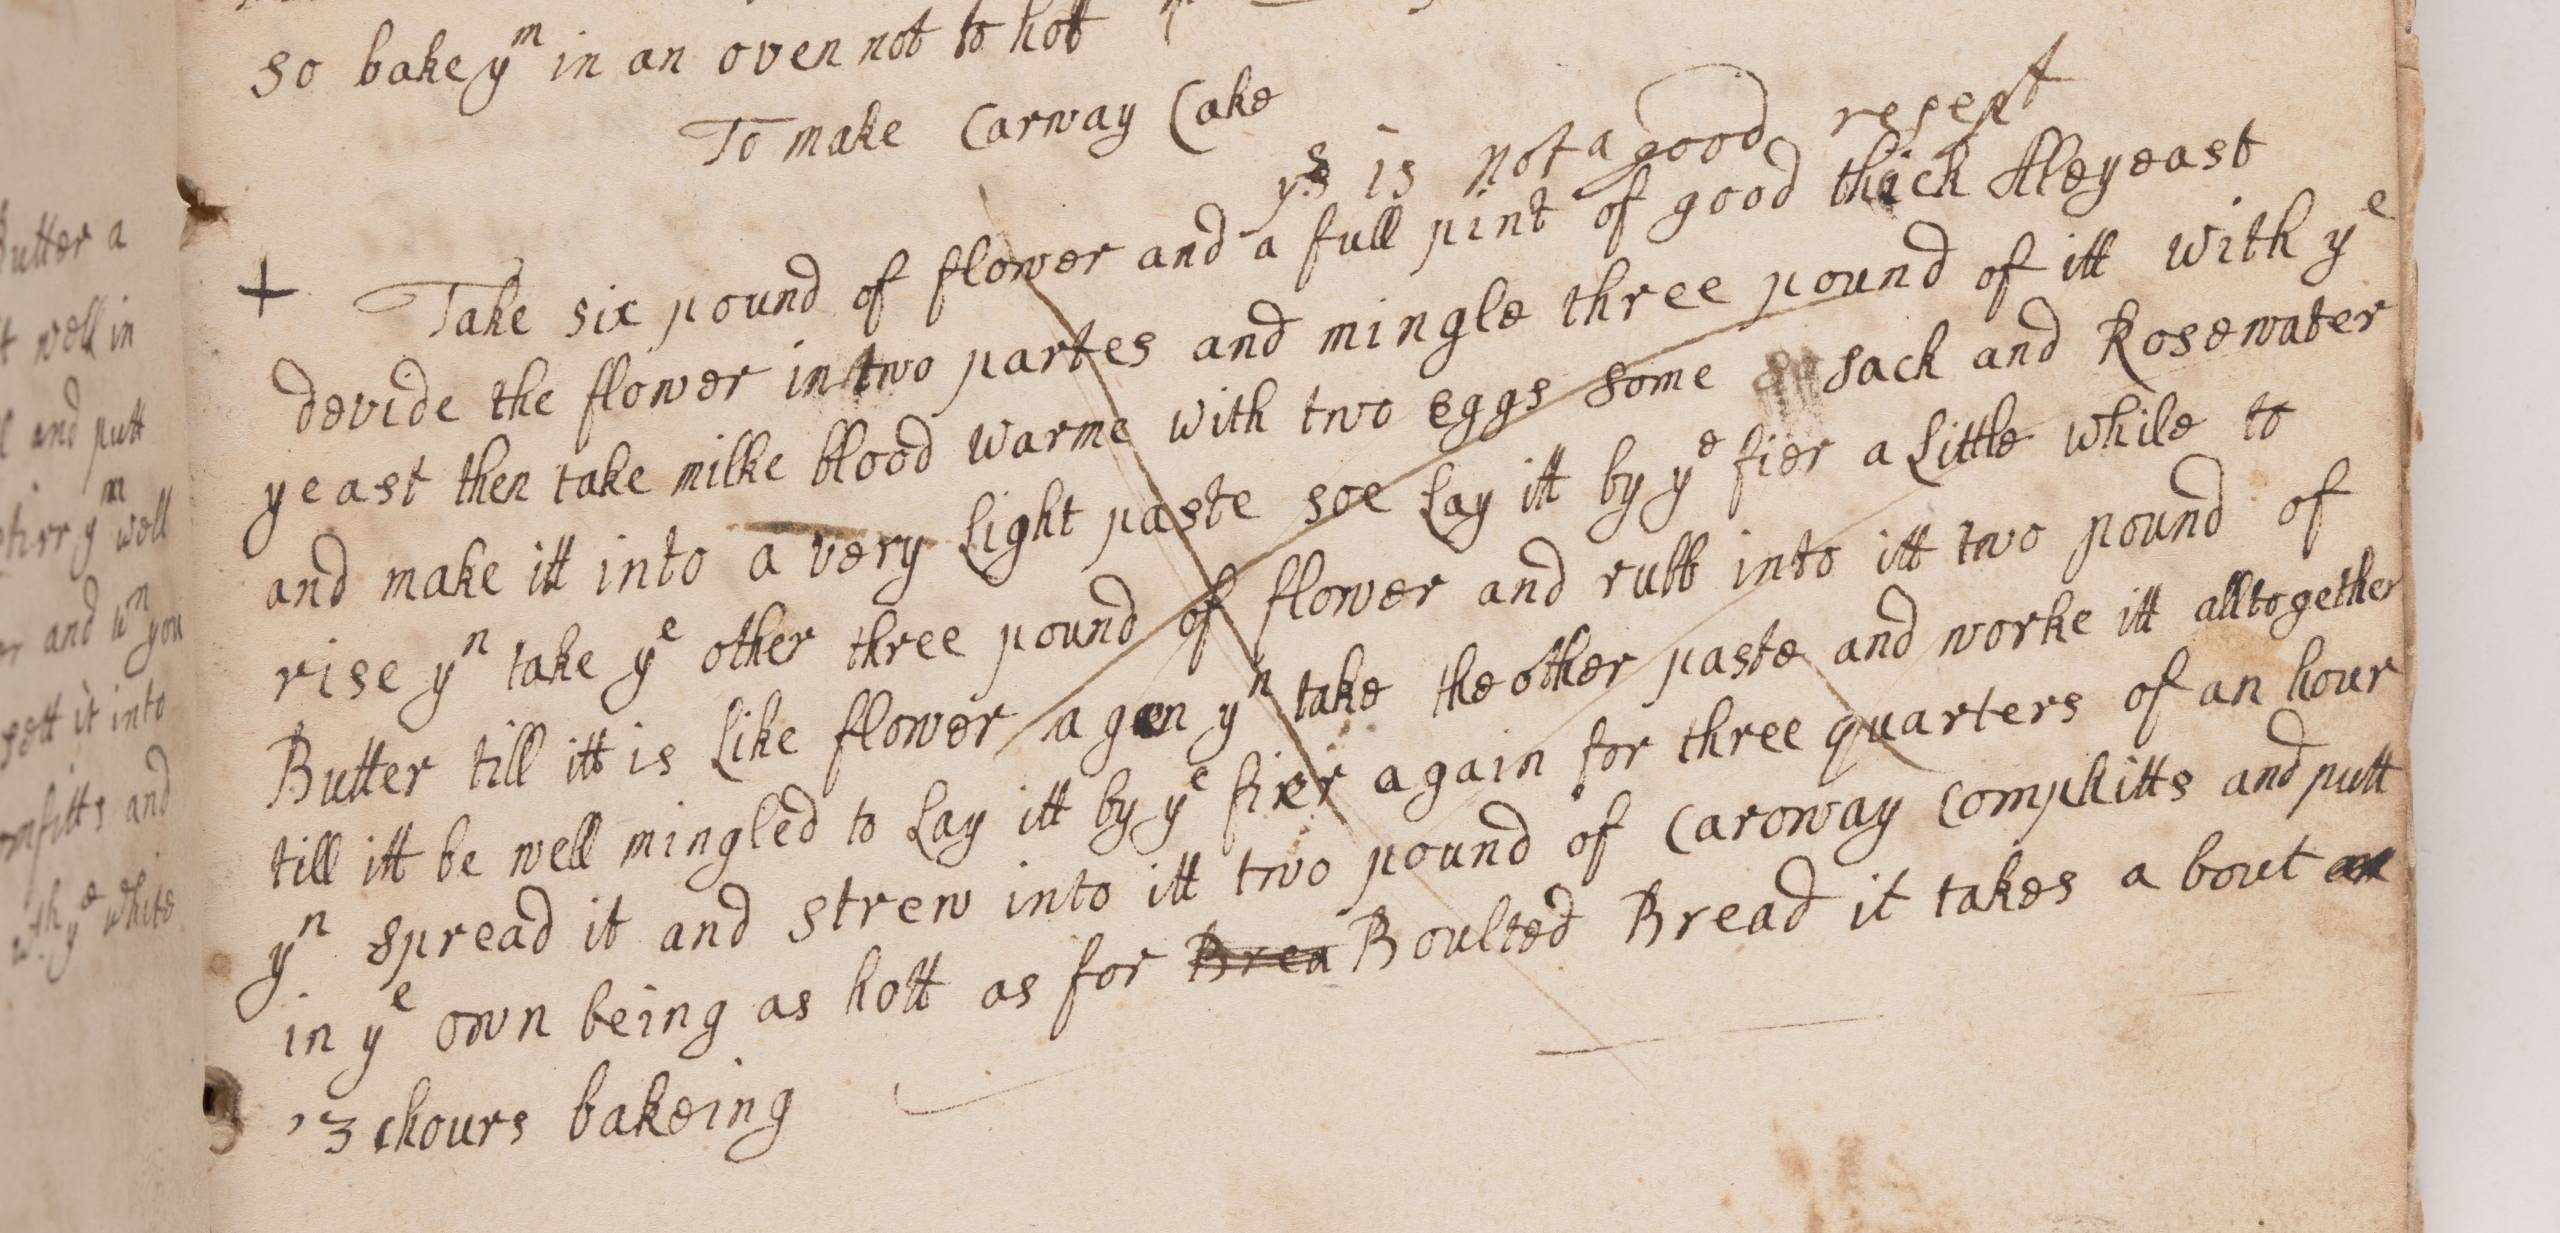 so bake yᵐ in an oven not to hott
To make Carway Cake
yˢ is not a good resept
+ Take six pound of flower and a full pint of good thick Aleyeast
devide the flower in two partes and mingle three pound of itt with yᵉ
yeast then take milke blood warme with two eggs some sack and Rosewater
and make itt into a very Light paste soe Lay itt by yᵉ fier a Little while to
rise yⁿ take yᵉ other three pound of flower and rubb into itt two pound of
Butter till itt is Like flower agen yⁿ take the other paste and worke itt alltogether
till itt be well mingled to Lay itt by yᵉ fier again for three quarters of an hour
yⁿ spread it and strew into itt two pound of Caroway Comphitts and putt
in yᵉ own being as hott as for Brea Boulted Bread it takes a bout
3 hours bakeing
Butter a
well in
and putt
yᵐ well
and wⁿ you
sett it into
and
wᵗʰ yᵉ white